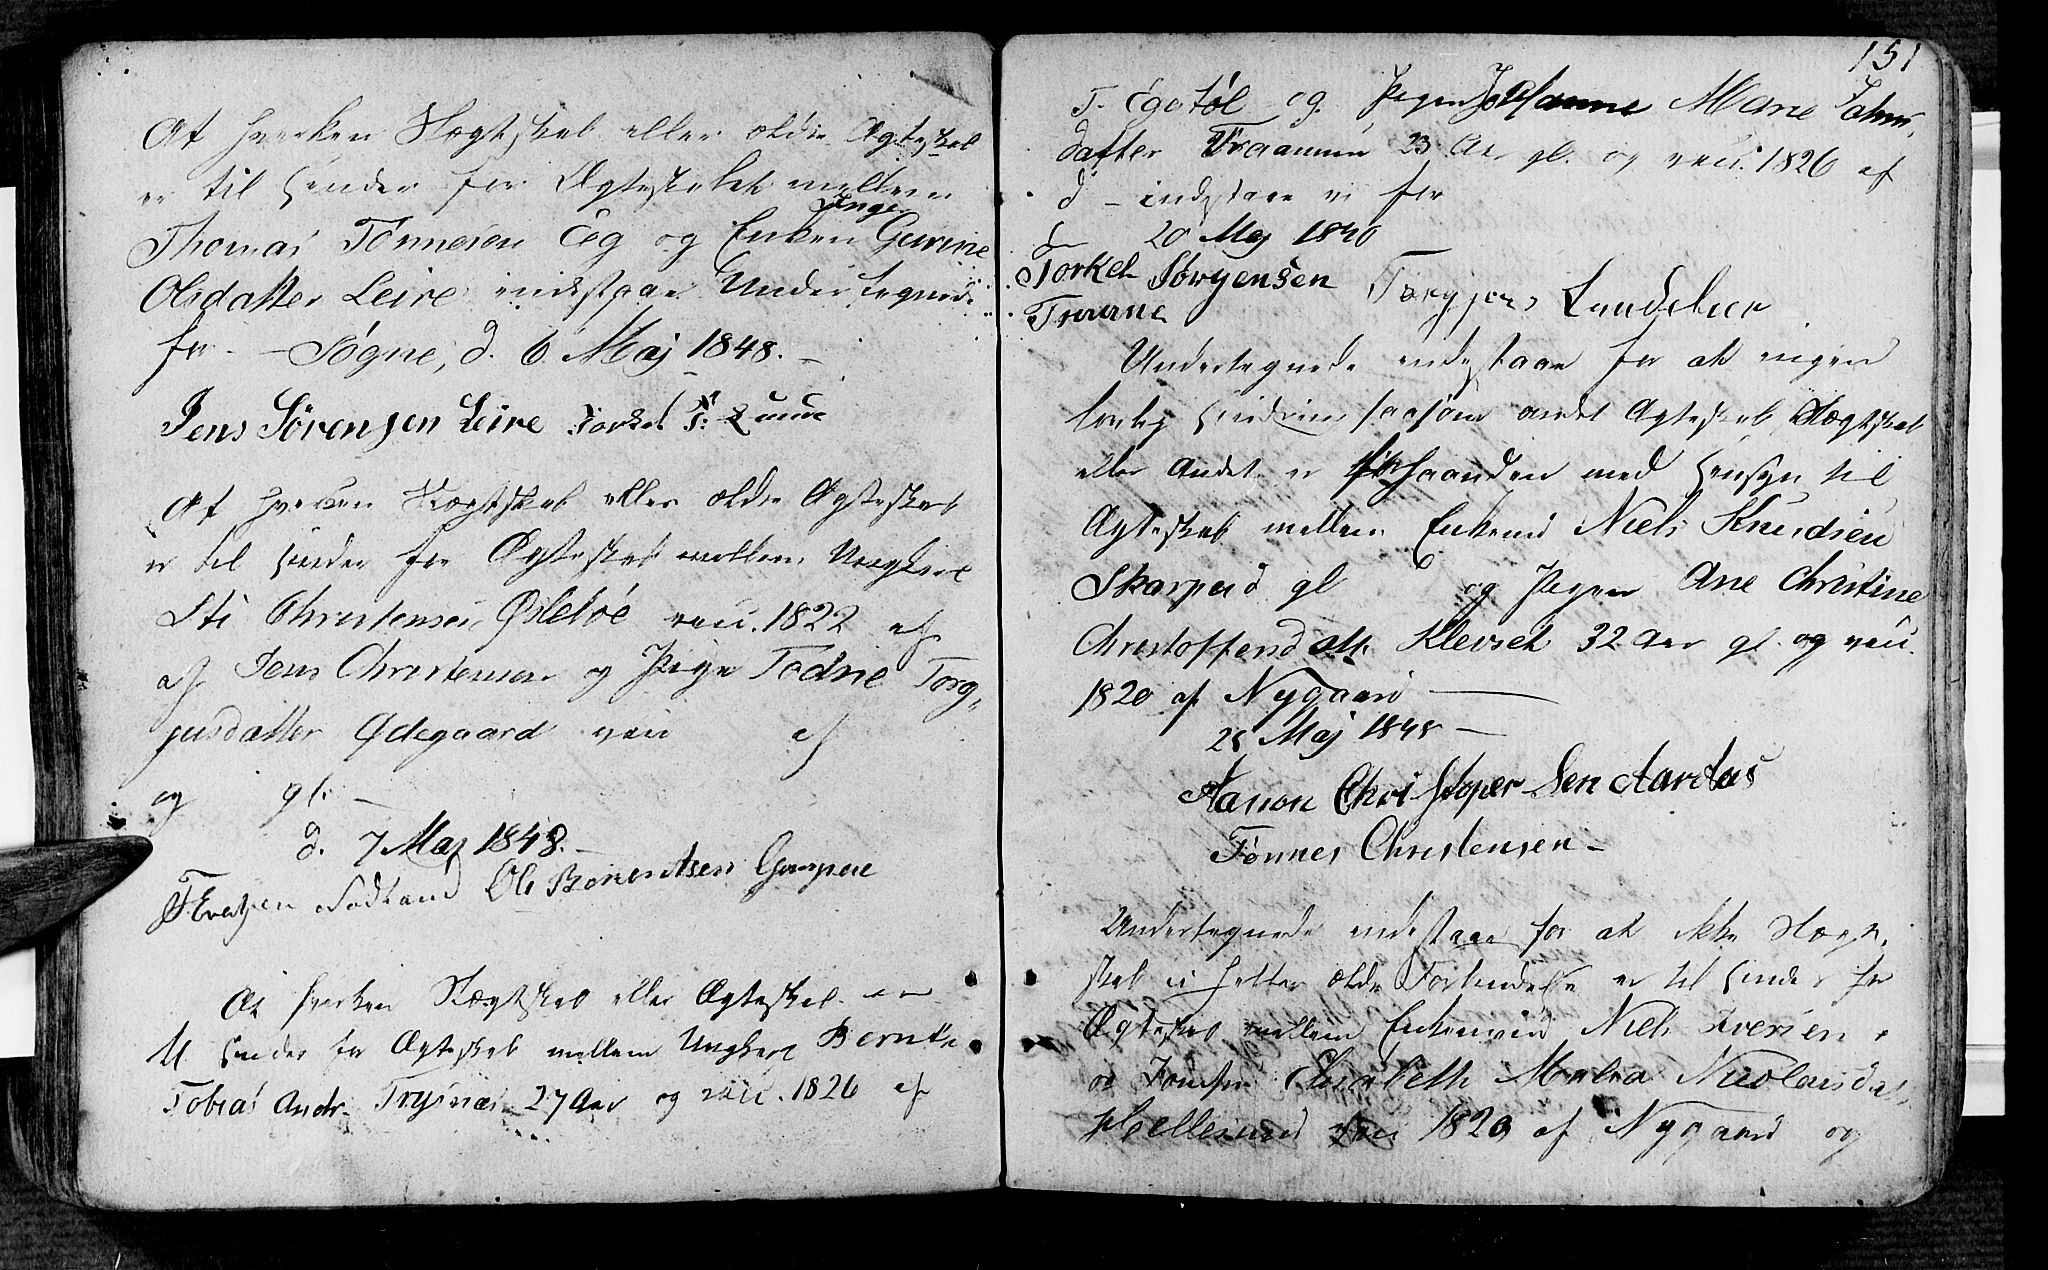 At hverken Slægtskab eller ældre Ægteskab
er til Hinder for Ægteskabet mellem
Thomas Tønnesen Eeg og Enken Inger Gurine
Olsdatter Leire indestaae Undertegnede
for. – Søgne, d. 6 Maj 1848. –
Jens Sørensen Leire Torkel T. Lunde
At hverken Slægtskab eller ældre Ægteskab
er til Hinder for Ægteskab mellem Ungkarl
Christensen vacc. 1822 af
af Jens Christensen og Pige Torg-
jusdatter Ødegaard vacc af
og gl. –
d. 7 Maj 1848. –
Ole Berentsen
At hverken Slægtskab eller Ægteskab er
til Hinder for Ægteskab mellem Ungkarl Bernt
Tobias Andr. Trysnæs 27 Aar og vacc. 1826 af
151
T. Egotøl og Pigen Johanne Marie
datter 23 Aar gl. og vacc. 1826 af
d – indestaae vi for
20 Maj 1848
Torkel Sørgensen
Undertegnede indestaae for at ingen
lovlig Hindring saasom andet Ægteskab, Slægtskab
eller Andet er forhaanden med Hensyn til
Ægteskab mellem Enkemand Niels Knudsen
Skarpeid gl og Pigen Ane Christine
Christoffersdatt. Klevset 32 Aar gl. og vacc.
1820 af Nygaard –
Maj 1848 –
Aanon Christopersen
Tønnes Christensen –
Undertegnede indestaae for at ikke Slægt-
skab ei heller ældre Forbindelse er til Hinder for
Ægteskab mellem Enkemand Niels Iversen
og Jomfru Elisabeth Malea Nicolaisda.
Hellesund vacc 1820 af Nygaard og